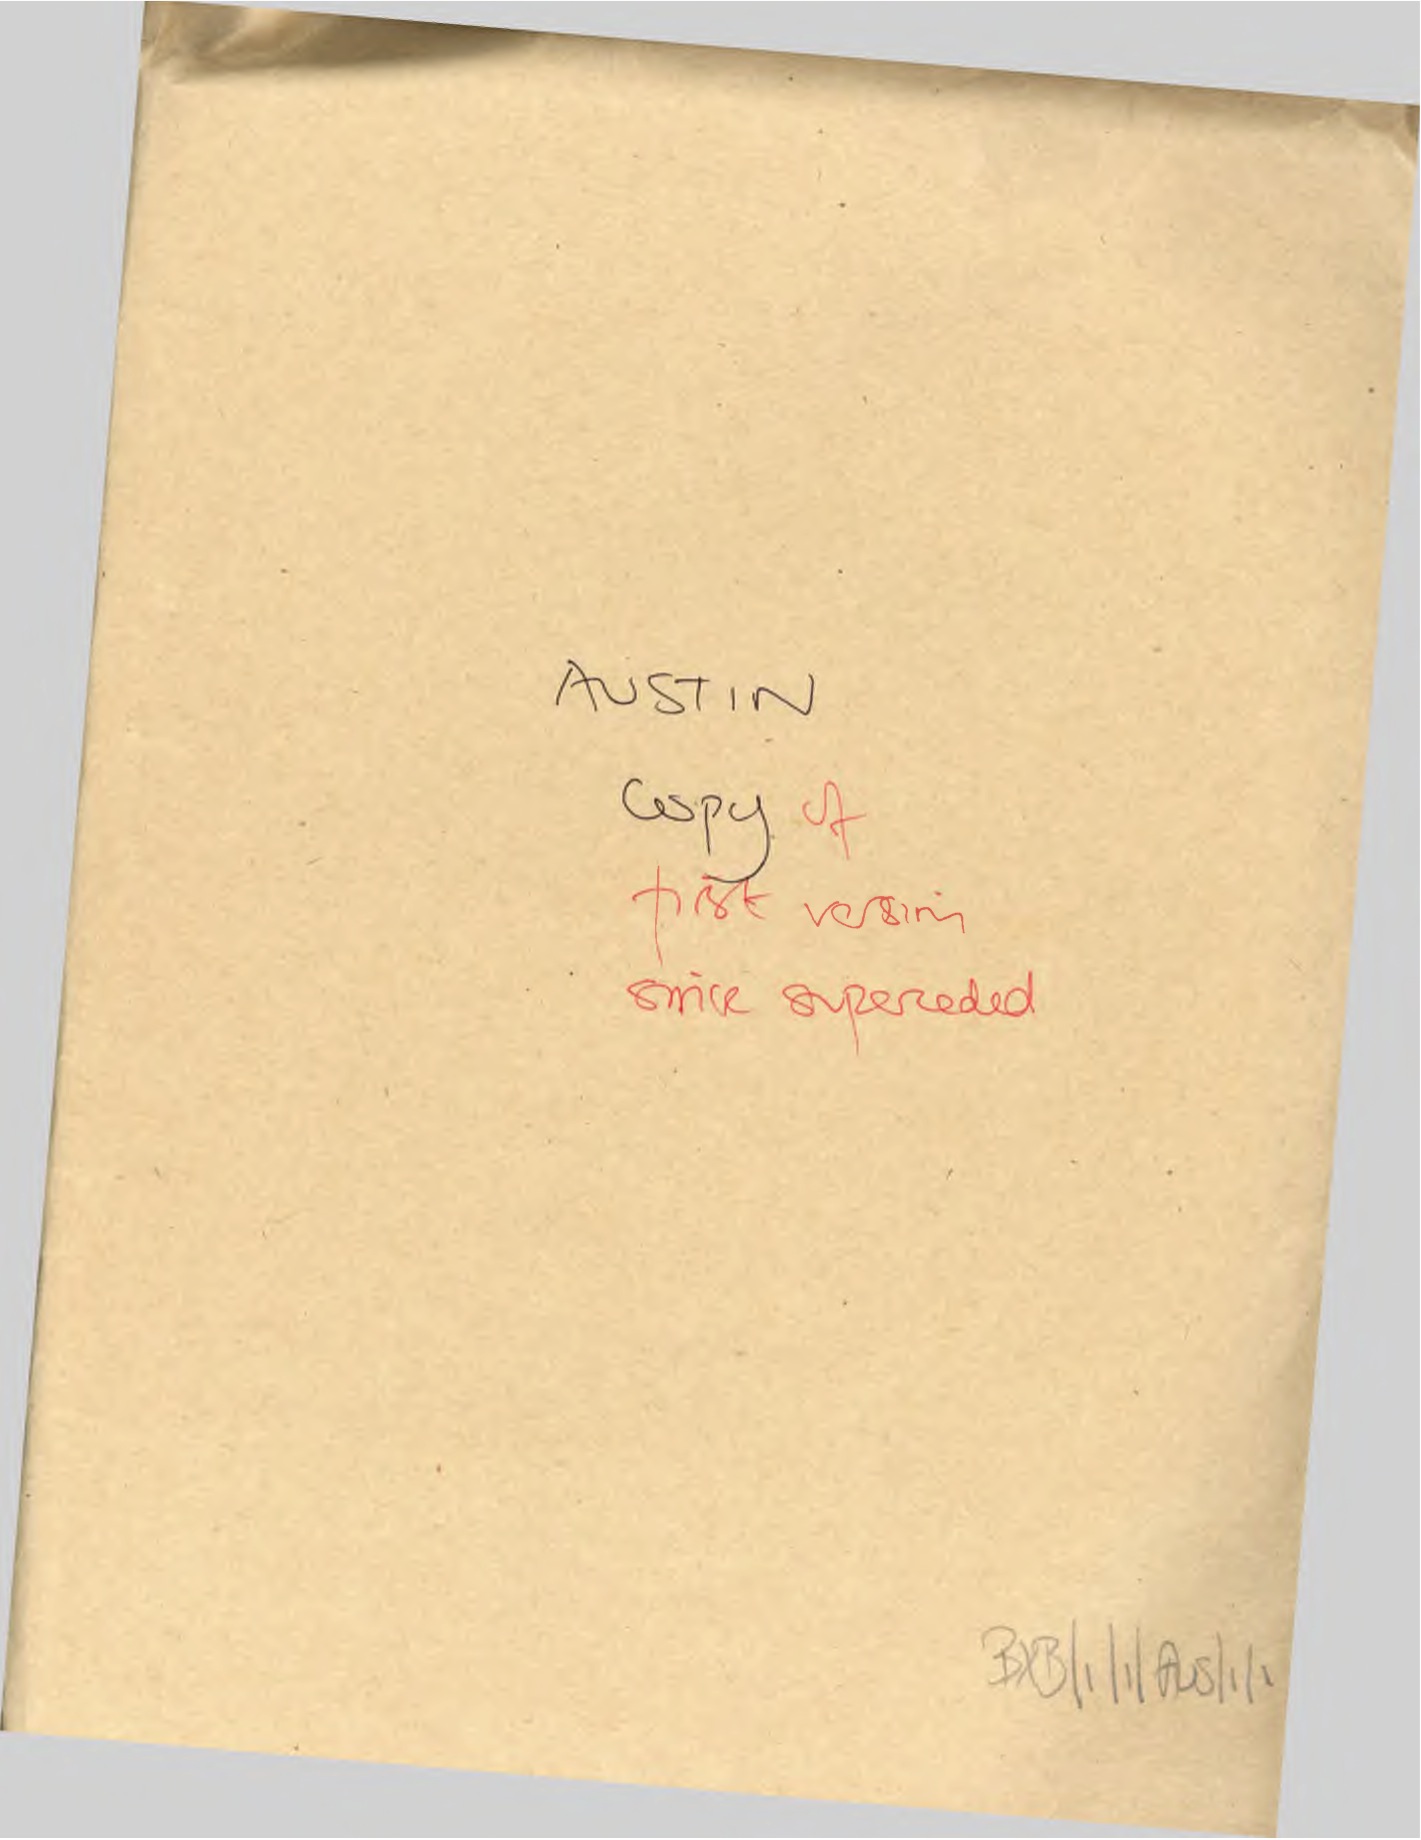 AUSTIN
Copy of
first version
since superceded
BXB/1/1/AUS/1/1